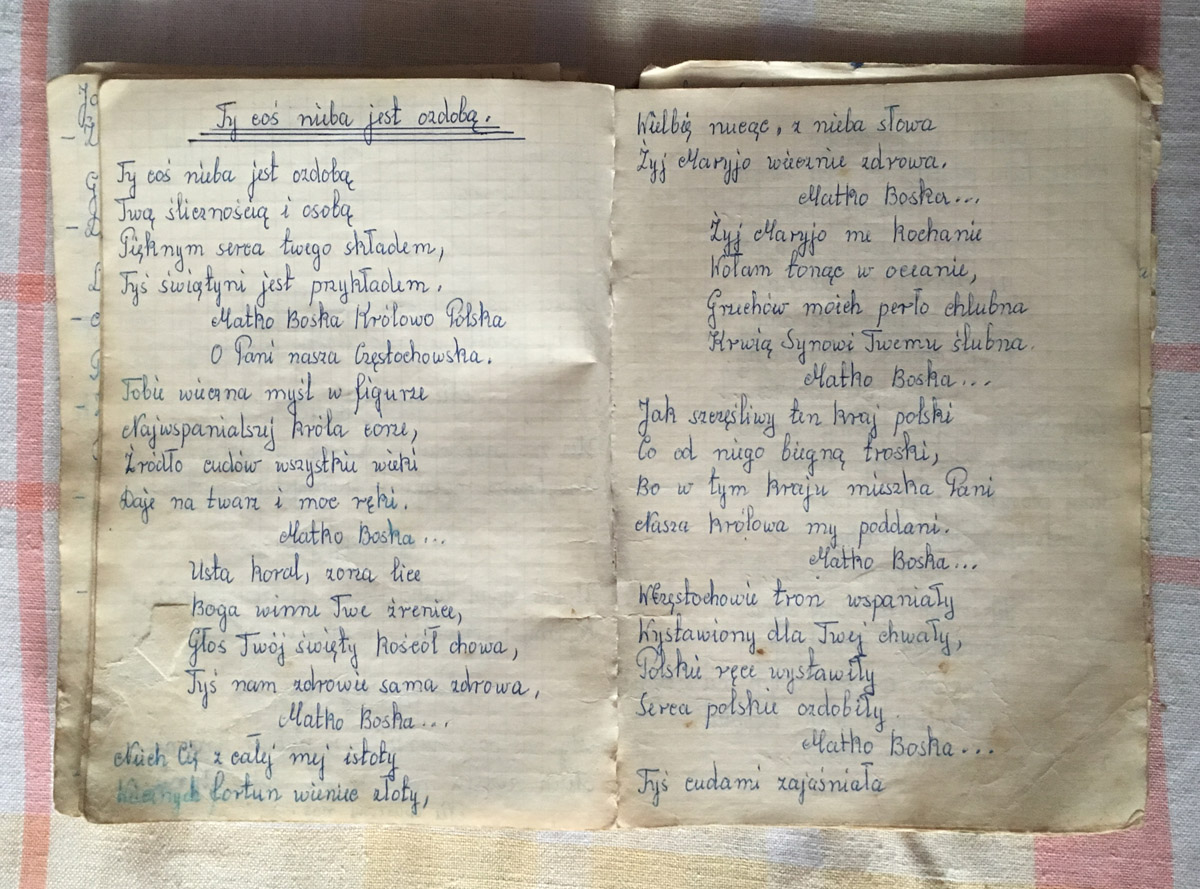 Ty coś nieba jest ozdobą.
Ty coś nieba jest ozdobą
Twą ślicznością i osobą
Pięknym serca twego składem,
Tyś świątyni jest przykładem.
Matko Boska Królowo Polska
O Pani nasza Częstochowska.
Tobie wieczna myśl w figurze
Najwspanialszej króla córze,
Źródło cudów wszystkie wieki
Daje na twarz i moc ręki.
Matko Boska...
Usta koral, zorza lice
Boga winne Twe źrenice,
Głos Twój święty kościół chowa,
Tyś nam zdrowie sama zdrowa,
Matko Boska...
Niech Cię z całej mej istoty
Wiecznych fortun wieniec złoty,
Wielbię nucąc, z nieba słowa
Żyj Maryjo wiecznie zdrowa.
Matko Boska...
Żyj Maryjo me kochanie
Wołam tonąc w oceanie,
Grzechów moich perło chlubna
Krwią Synowi Twemu ślubna.
Matko Boska...
Jak szczęśliwy ten kraj polski
Co od niego biegną troski,
Bo w tym kraju mieszka Pani
Nasza królowa my poddani.
Matko Boska...
WCzęstochowie tron wspaniały
Wystawiony dla Twej chwały,
Polskie ręce wystawiły
Serca polskie ozdobiły.
Matko Boska...
Tyś cudami zajaśniała